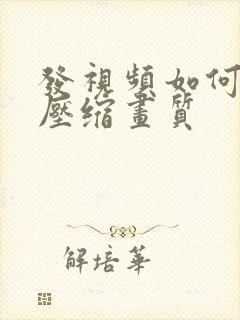 發視頻如何
壓缩畫质
解培華